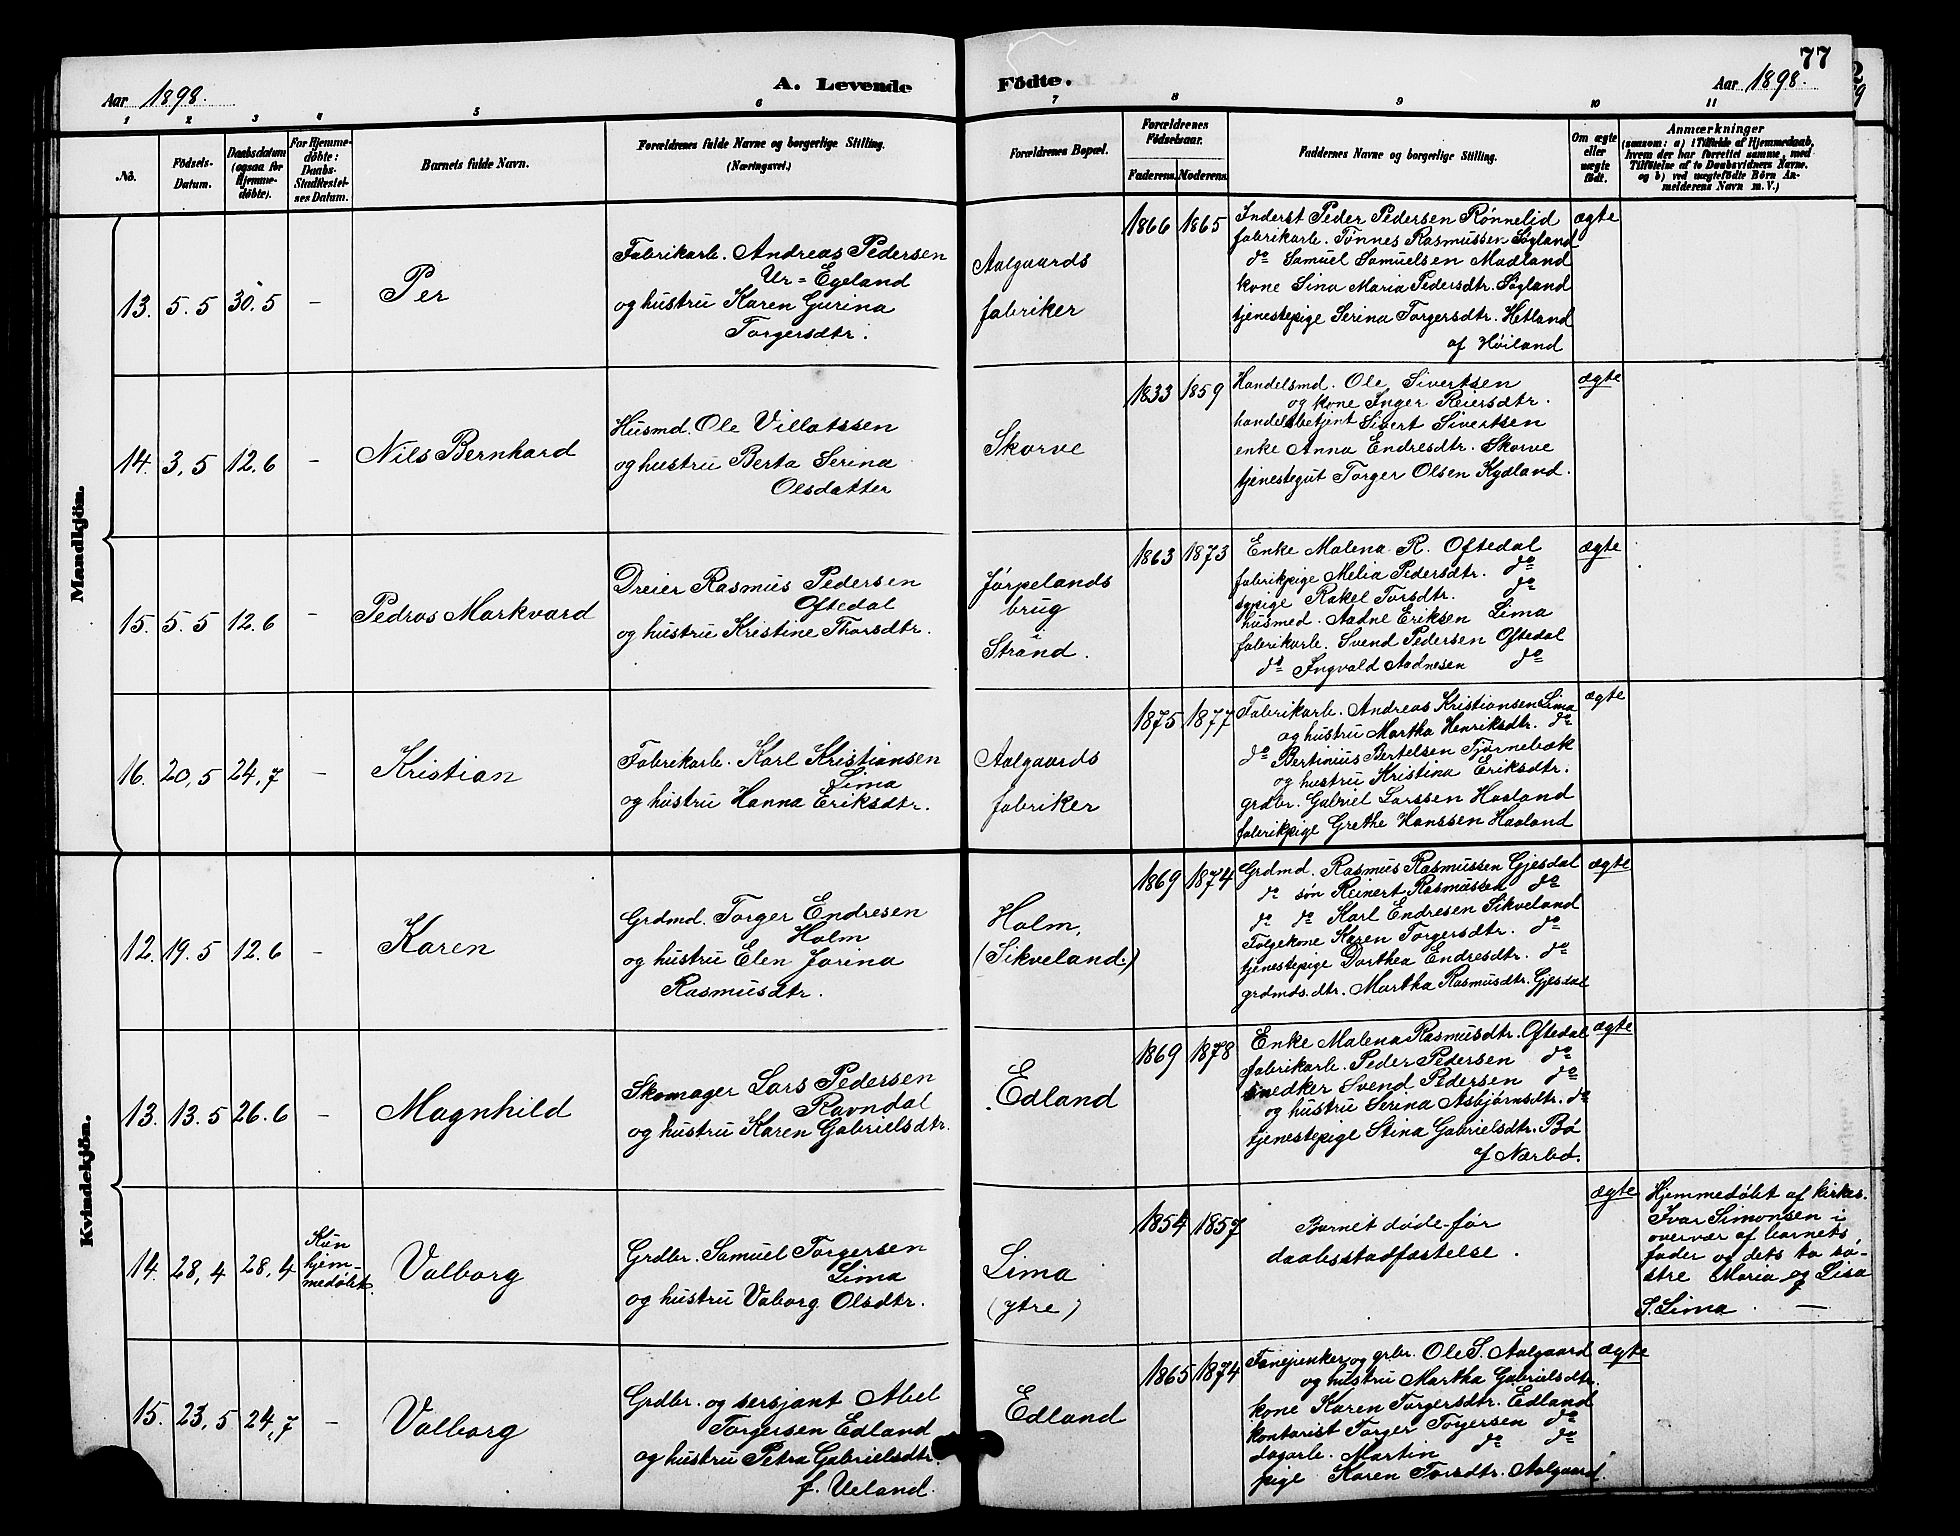 77
Aar 1898.
A. Levende Födte.
Aar 1898.
1 2 3 4 5 6 7 8 9 10 11
No.
Födsels-
Datum.
Daabsdatum
(ogsaa for
Hjemme-
döbte).
For Hjemme-
döbte:
Daabs-
Stadfæstel-
ses Datum.
Barnets fulde Navn.
Forældrenes fulde Navne og borgerlige Stilling.
(Næringsvei.)
Forældrenes Bopæl.
Forældrenes
Födselsaar.
Faderens. Moderens.
Faddernes Navne og borgerlige Stilling.
Om ægte
eller
uægte
födt.
Anmærkninger
(saasom: a) i Tilfælde af Hjemmedaab,
hvem der har forrettet samme, med
Tilföielse af to Daabsvidners Navne,
og b) ved uægtefödte Börn An-
melderens Navn m. V.)
Mandkjön.
13. 5.5 30.5 - Per
Fabrikarb. Andreas Pedersen
Ur=Egeland
og hustru Karen Gurina
Torgersdtr.
Aalgaards
fabriker
1866 1865
Inderst Peder Pedersen Rønnelid
fabrikarb. Tønnes Rasmussen Søgland
do Samuel Samuelsen Madland
kone Sina Maria Pedersdtr. Søgland
tjenestepige Serina Torgersdtr. Hetland
af Høiland
ægte
14. 3,5 12.6 - Nils Bernhard
Husmd. Ole Villatssen
og hustru Berta Serina
Olsdatter
Skorve
1833 1859
Handelsmd. Ole Sivertsen
og kone Inger Reiersdtr.
handelsbetjent Sivert Sivertsen
enke Anna Endresdtr. Skorve
tjenestegut Torger Olsen Kydland.
ægte
15. 5.5 12.6 - Pedras Markvard
Dreier Rasmus Pedersen
Oftedal
og hustru Kristine Thorsdtr.
Jørpelands
brug
Strand.
1863 1873
Enke Malena R. Oftedal
fabrikpige Melia Pedersdtr. do
sypige Rakel Torsdtr. do
husmed. Aadne Eriksen Lima
fabrikarb. Svend Pedersen Oftedal
do Ingvald Aadnesen do
ægte
16. 20,5 24,7 - Kristian
Fabrikarb. Karl Kristiansen
Lima
og hustru Hanna Eriksdtr.
Aalgaards
fabriker
1875 1877
Fabrikarb. Andreas Kristiansen Lima
og hustru Martha Henriksdtr. do
do Bertinius Bertelsen Tjørnebæk
og hustru Kristina Eriksdtr.
grdbr. Gabriel Larssen Haaland
fabrikpige Grethe Hanssen Haaland
ægte
Kvindekjön.
12. 19.5 12.6 - Karen
Grdmd. Torger Endresen
Holm
og hustru Elen Jorina
Rasmusdtr.
Holm,
(Sikveland.)
1869 1874
Grdmd. Rasmus Rasmussen Gjesdal
do søn Reinert Rasmussen do
do do Karl Endresen Sikveland
Følgekone Karen Torgersdtr. do
tjenestepige Dorthea Endresdtr. do
grdmds. dtr. Martha Rasmusdtr. Gjesdal
ægte
13. 13.5 26.6 - Magnhild
Skomager Lars Pedersen
Ravndal
og hustru Karen Gabrielsdtr.
Edland
1869 1878
Enke Malena Rasmusdtr. Oftedal
fabrikarb. Peder Pedersen do
snedker Svend Pedersen do
og hustru Serina Asbjørnsdtr. do
tjenestepige Stina Gabrielsdtr. Bø
af Nærbø.
ægte
14. 28,4 28,4
Kun
hjem-
medøbt.
Valborg
Grdbr. Samuel Torgersen
Lima
og hustru Vaborg Olsdtr.
Lima
(ytre)
1854 1857
Barnet døde før
daabsstadfæstelse.
ægte
Hjemmedøbt af kirkes.
Ivar Simonsen i
overvær af barnets
fader og dets to sø-
stre Maria og Lisa
S. Lima. —
15. 23,5 24,7 - Valborg
Grdbr. og sersjant Abel
Torgersen Edland
og hustru Petra Gabrielsdtr.
f. Ueland.
Edland
1865 1874
og grbr. Ole S. Aalgaard
og hustru Martha Gabrielsdtr.
kone Karen Torgersdtr. Edland
kontorist Torger Torgersen do
dagarb. Martin do do
pige Karen Torsdtr. Aalgaard.
ægte